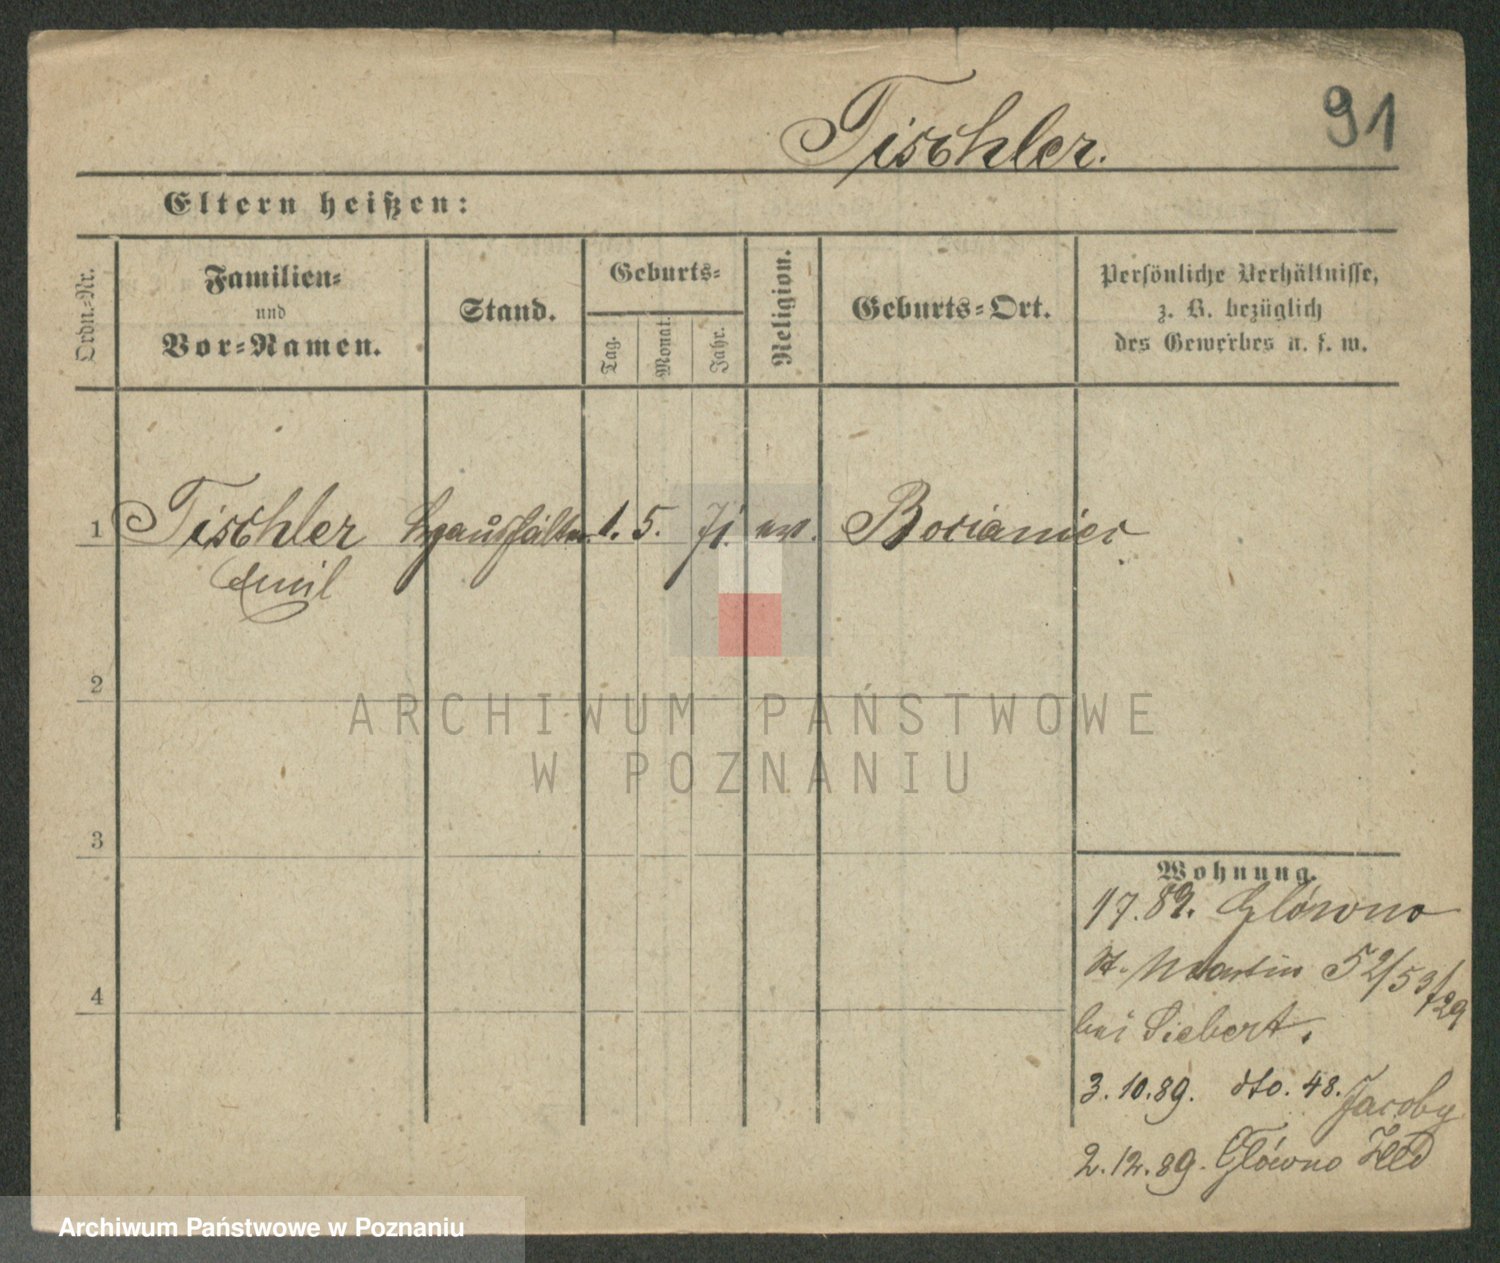 91
Tischler.
Eltern heißen:
Ordn.-Nr.
Familien-
und
Vor-Namen.
Stand.
Geburts-
Tag.
Monat.
Jahr.
Religion.
Geburts-Ort.
Persönliche Verhältnisse,
z. B. bezüglich
des Gewerbes u. s. w.
1 Tischler 1. 5. 71. ev. Bocianiec
Emil
2
ARCHIWUM PAŃSTWOWE
W POZNANIU
3
4
Wohnung.
17.89. Glówno
St. Martin 52/53/29
bei Siebert.
3.10.89. dto. 48. Jacoby
2.12.89. Glówno
Archiwum Państwowe w Poznaniu